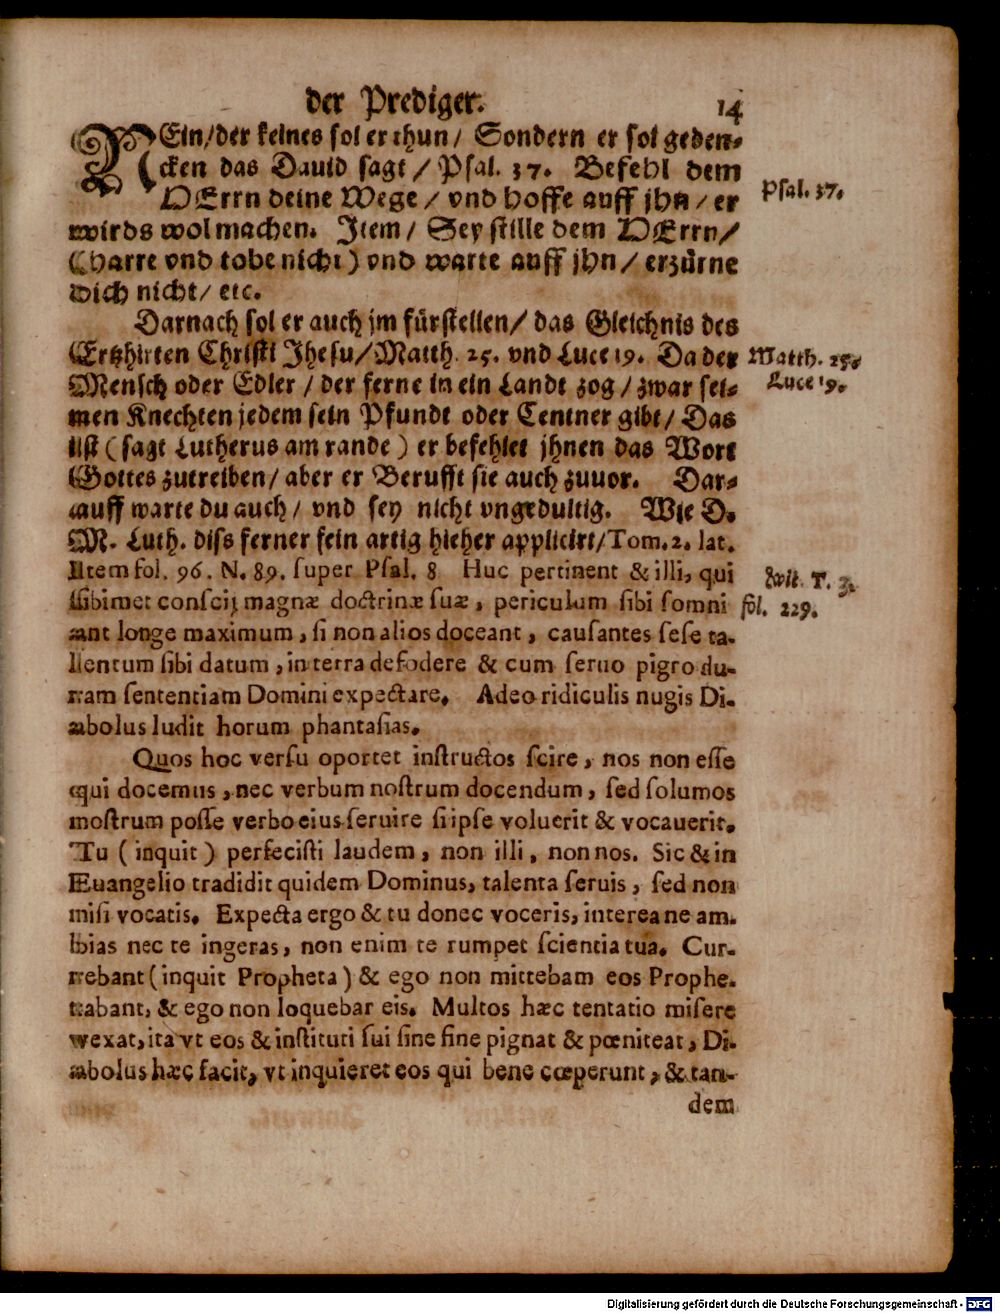 der Prediger. 14
NEin/der keines sol er thun/ Sondern er sol geden-
cken das Dauid sagt/ Psal. 37. Befehl dem
HErrn deine Wege/ vnd hoffe auff jhn/ er
Psal. 37.
wirds wol machen. Item/ Sey stille dem HErrn/
(harre vnd tobe nicht) vnd warte auff jhn/ erzürne
dich nicht/ etc.
Darnach sol er auch jm fürstellen/ das Gleichnis des
Ertzhirten Christi Jhesu/ Matth. 25. vnd Luce 19. Da der
Matth. 25.
Mensch oder Edler/ der ferne in ein Landt zog/ zwar sei-
Luce 19.
nen Knechten jedem sein Pfundt oder Centner gibt/ Das
ist (sagt Lutherus am rande) er befehlet jhnen das Wort
Gottes zutreiben/ aber er Berufft sie auch zuuor. Dar-
auff warte du auch/ vnd sey nicht vngedultig. Wie D.
M. Luth. diss ferner fein artig hieher applicirt/ Tom. 2. lat.
Item fol. 96. N. 89. super Psal. 8 Huc pertinent & illi, qui
Wit. T. 3.
sibimet conscij magnæ doctrinæ suæ, periculum sibi somni
fol. 229.
ant longe maximum, si non alios doceant, causantes sese ta-
lentum sibi datum, in terra defodere & cum seruo pigro du-
ram sententiam Domini expectare. Adeo ridiculis nugis Di-
abolus ludit horum phantasias.
Quos hoc versu oportet instructos scire, nos non esse
qui docemus, nec verbum nostrum docendum, sed solumos
nostrum posse verbo eius seruire si ipse voluerit & vocauerit.
Tu (inquit) perfecisti laudem, non illi, non nos. Sic & in
Euangelio tradidit quidem Dominus, talenta seruis, sed non
nisi vocatis. Expecta ergo & tu donec voceris, interea ne am-
bias nec te ingeras, non enim te rumpet scientia tua. Cur-
rebant (inquit Propheta) & ego non mittebam eos Prophe-
tabant, & ego non loquebar eis. Multos hæc tentatio misere
vexat, ita vt eos & instituti sui sine fine pignat & pœniteat, Di-
abolus hæc facit, vt inquieret eos qui bene cœperunt, & tan-
dem
Digitalisierung gefördert durch die Deutsche Forschungsgemeinschaft - DFG